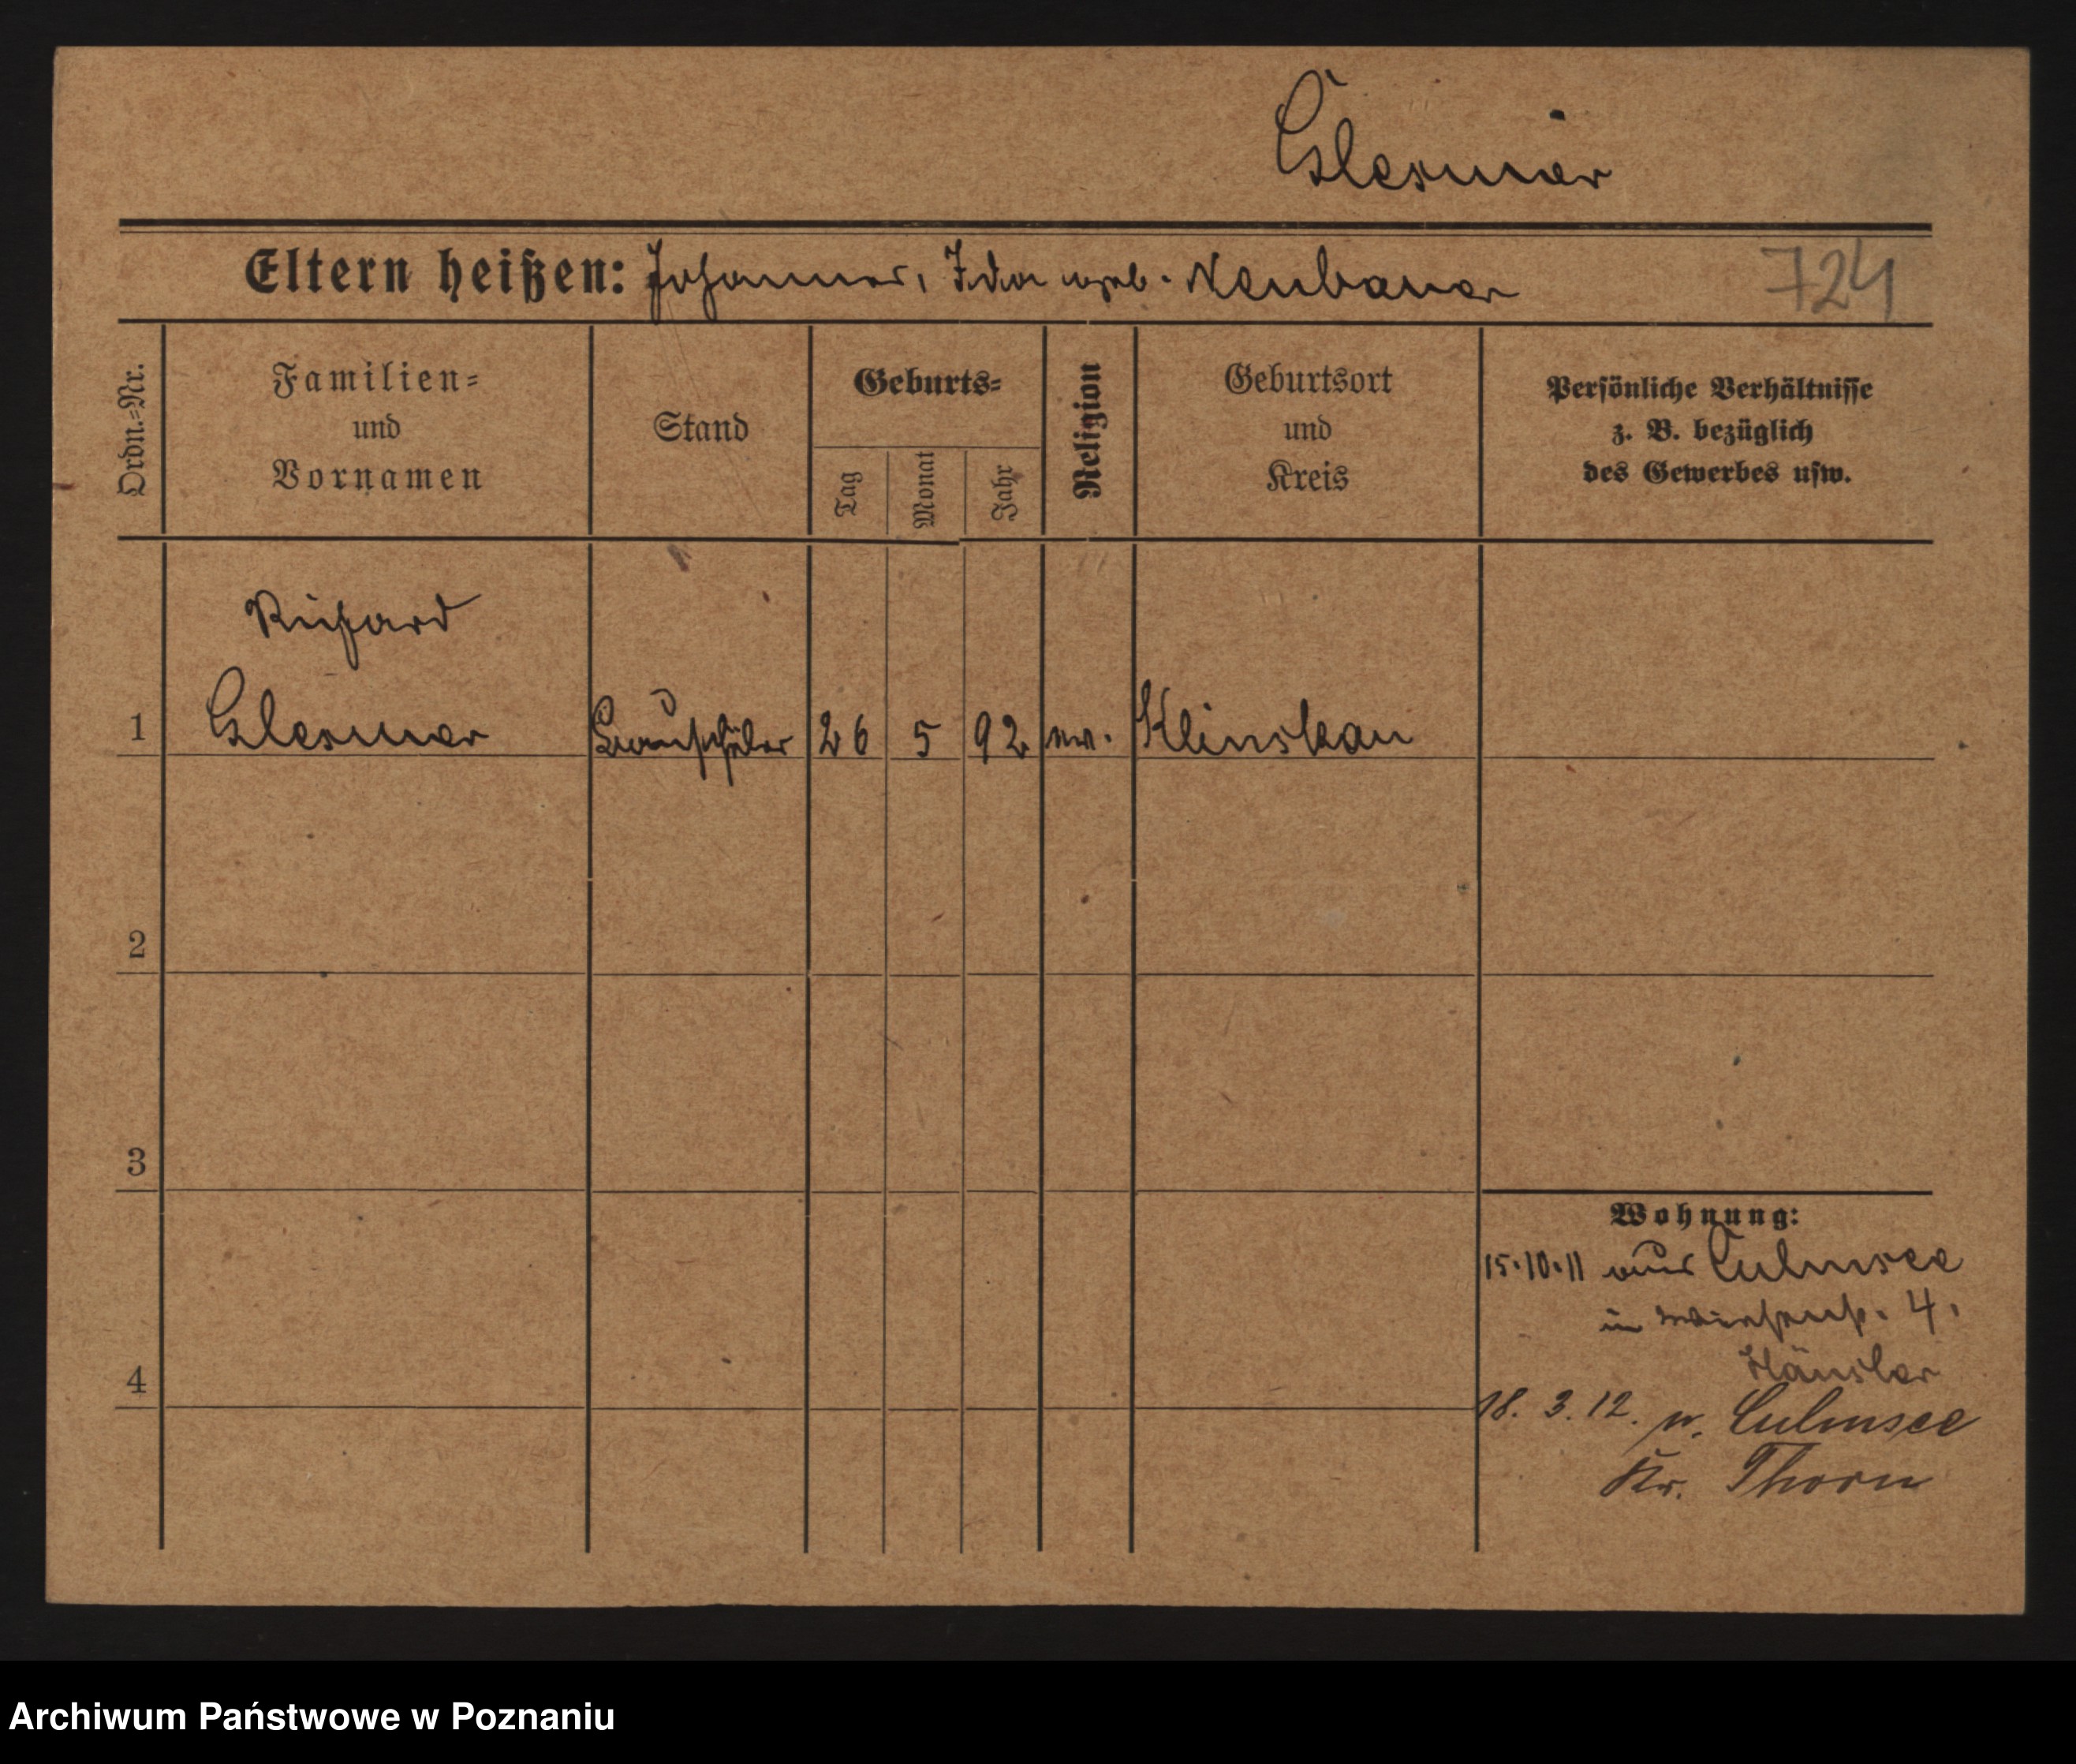 Glesmer
Eltern heißen: Johannes, Ida geb. Neubauer
724
Ordn.=Nr.
Familien=
und
Vornamen
Stand
Geburts=
Tag
Monat
Jahr
Religion
Geburtsort
und
Kreis
Persönliche Verhältnisse
z. B. bezüglich
des Gewerbes usw.
Richard
1 Glesmer Bauschüler 26 5 92 ev. Klinskau
2
3
Wohnung:
15.10.11 aus Culmsee
in 4.
Häusler
4
18. 3. 12. n. Culmsee
Kr. Thorn
Archiwum Państwowe w Poznaniu